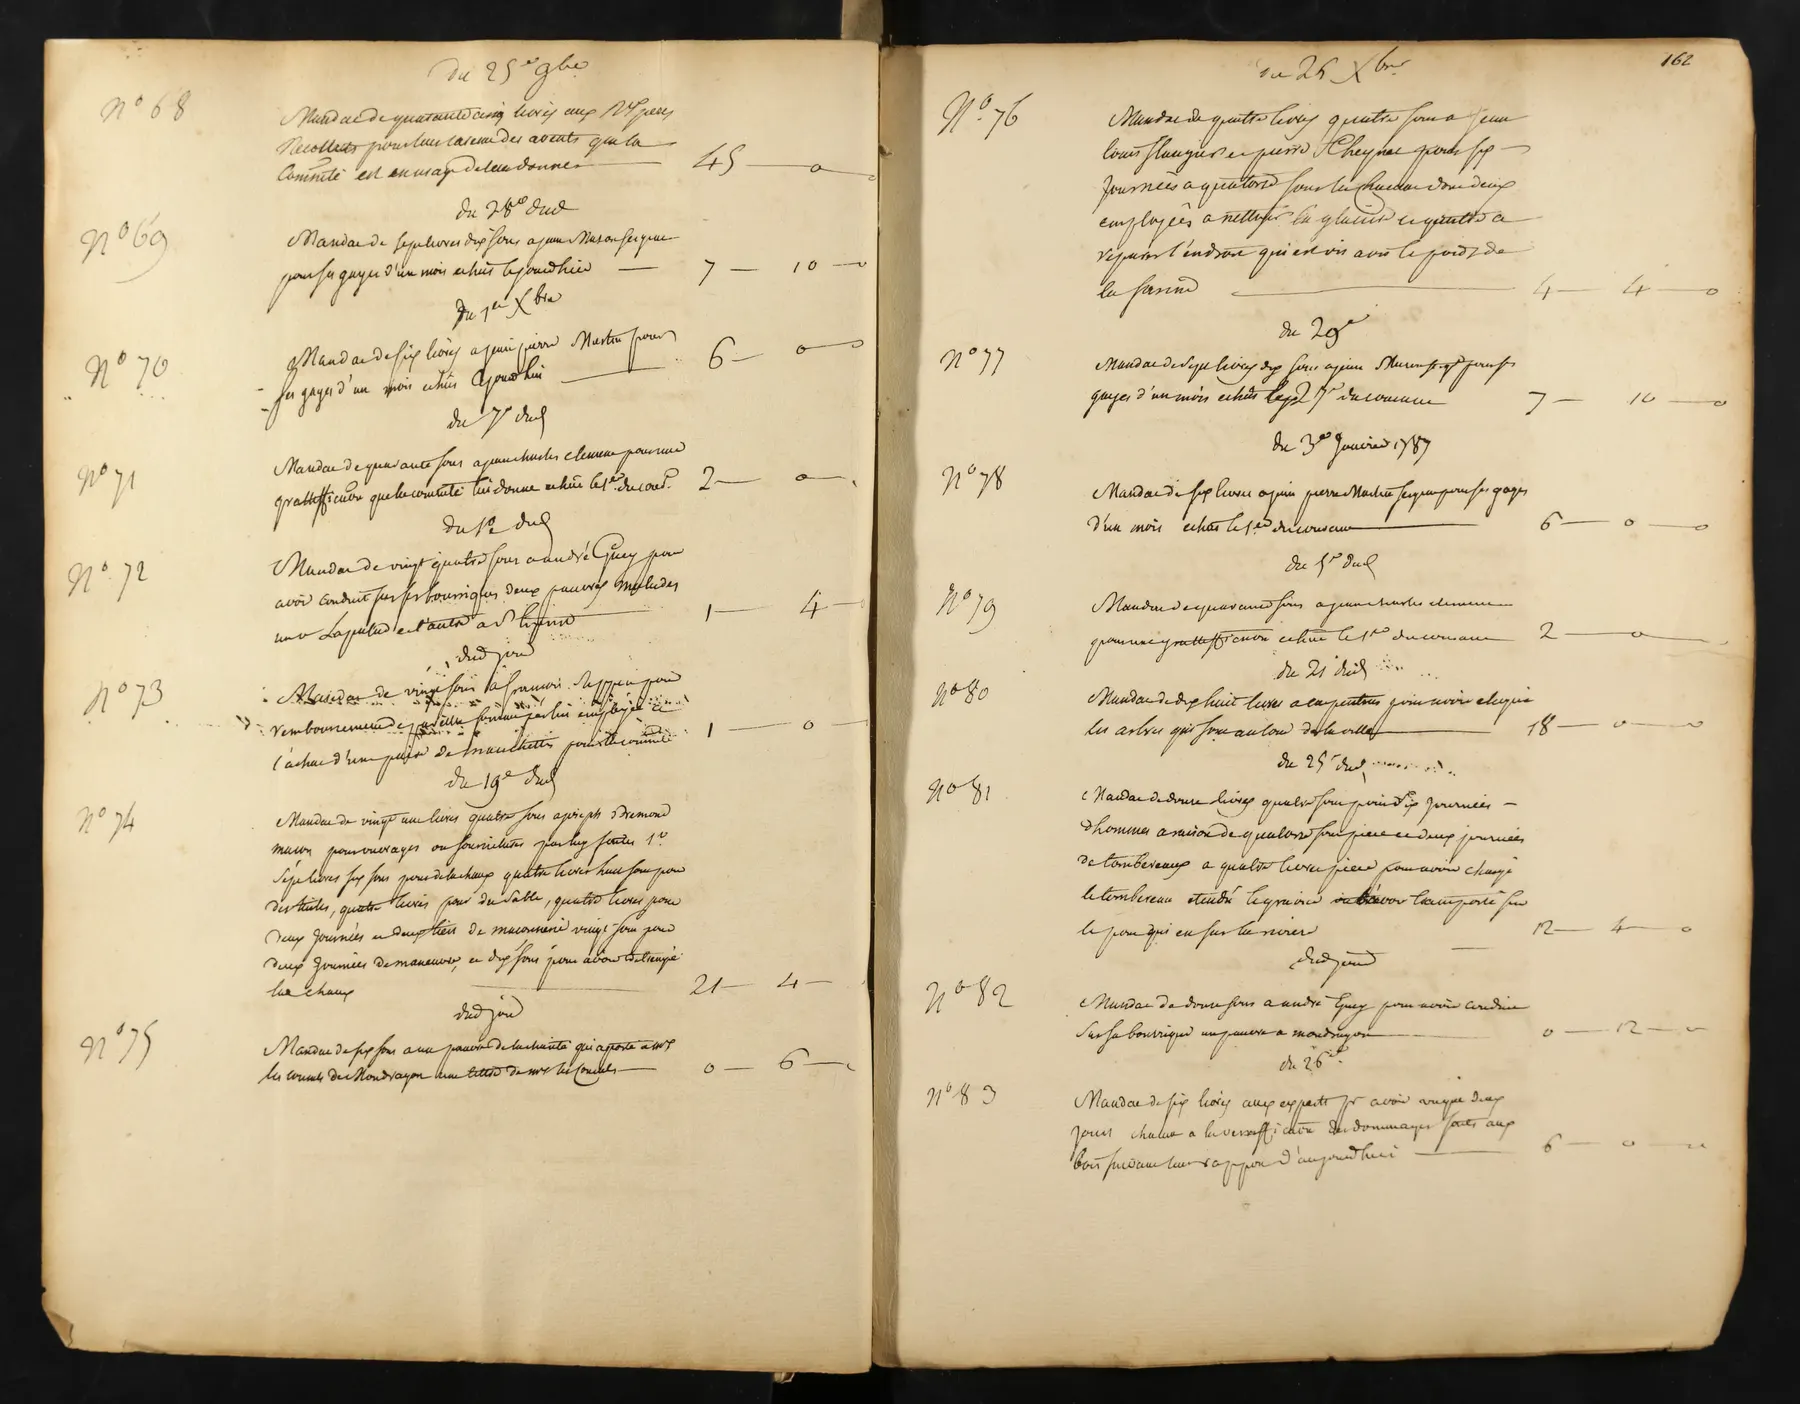 du 25e 9bre
N° 68
Mandat de quarante cinq livres aux R peres
Recollets pour leur careme des avents que la
Comnté est en usage de leur donner 45 0
du 28e dud
N° 69
Mandat de sept livres dix sous a jean Muson sergent
pour ses gages d'un mois echus le jourdhui 7 10 0
du 1er Xbre
N° 70
Mandat de six livres a jean pierre Martin pour
ses gages d'un mois echus ajourdhui 6 0 0
du 7e dud
N° 71
Mandat de quarante sous a jean charles clement pour une
gratiffication que la comnté lui donne echue le 1er du cort 2 0
du 10 dud
N° 72
Mandat de vingt quatre sous a andré Guey pour
avoir conduit sur ses bourriques deux pauvres malades
un a Lapalud et l'autre a St 1 4
dud jour
N° 73
Mandat de vingt sous a francois pour
remboursement de pareille somme par lui employée a
l'achat d'une paire de mouchettes pour la comnté 1 0
du 19e dud
N° 74
Mandat de vingt une livres quatre sous a joseph Dremond
macon pour ouvrages ou fournitures par luy faites 1°
sept livres six sous pour de la chaux quatre livres huit sous pour
des tuiles, quatre livres pour du sable, quatre livres pour
deux journées et deux tiers de maconnerie vingt sous pour
deux journées de maneuvre, et dix sous pour avoir detrempé
la chaux 21 4
dud jour
N° 75
Mandat de six sous a un pauvre de la charité qui a porté a mrs
les consuls de Mondragon une lettre de mrs les Consuls 0 6
162
du 26 Xbre
N° 76
Mandat de quatre livres quatre sous a jean
louis flaugier et pierre Cheynet pour six
journées a quatorze sous la chacune dont deux
employées a nettoyer la glaciere et quatre a
reparer l'endroit qui est vis a vis le poids de
la farine 4 4 0
du 29e
N° 77
Mandat de sept livres dix sous a jean Muson sergt pour ses
gages d'un mois echus le 27e du courant 7 10 0
du 3e Janvier 1787
N° 78
Mandat de six livres a jean pierre Martin sergent pour ses gages
d'un mois echus le 1er du courant 6 0 0
du 5e dud
N° 79
Mandat de quarante sous a jean charles clement
pour une gratiffication echue le 1er du courant 2 0
du 21 dud
N° 80
Mandat de dix huit livres a carpentras pour avoir elagué
les arbres qui sont autour de la ville 18 0 0
du 25e dud
N° 81
Mandat de douze livres quatre sous pour six journées
d'hommes a raison de quatorze sous piece et deux journées
de tombereaux a quatre livres piece pour avoir chargé
le tombereau etendu le gravier transporté sur
le pont qui est sur la riviere 12 4 0
dud jour
N° 82
Mandat de douze sous a andré Guey pour avoir conduit
sur sa bourrique un pauvre a mondragon 0 12 0
du 26e
N° 83
Mandat de six livres aux experts pr avoir vaqué deux
jours chacun a la veriffication des dommages faits aux
bois suivant leur rapport d'aujourdhui 6 0 0